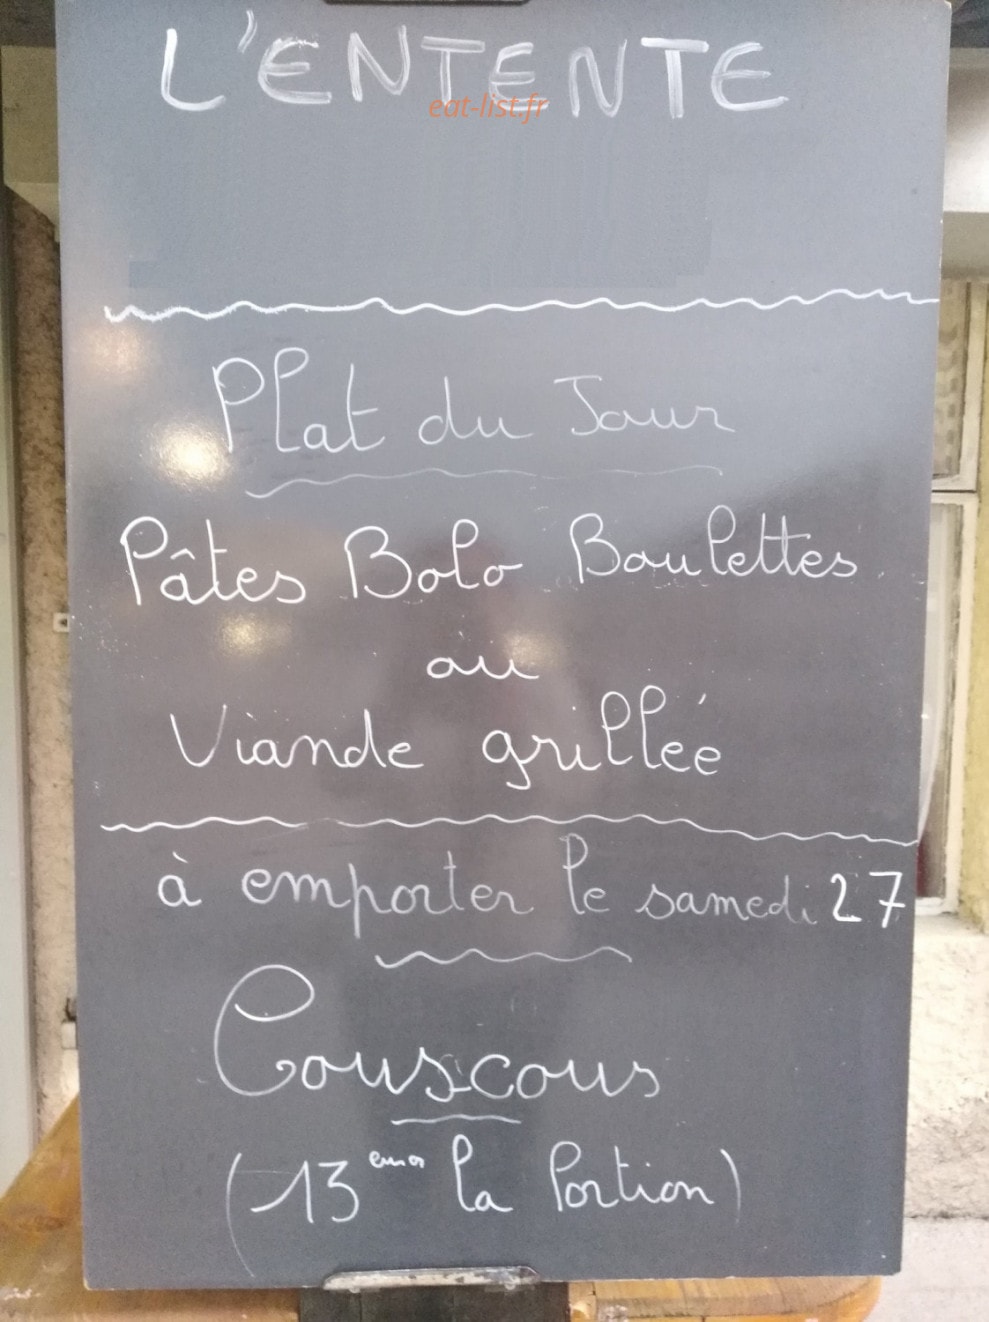 L'ENTENTE
eat-list.fr
Plat du Jour
Pâtes Bolo Boulettes
ou
Viande grillée
à emporter le samedi 27
Couscous
(13 euros la Portion)